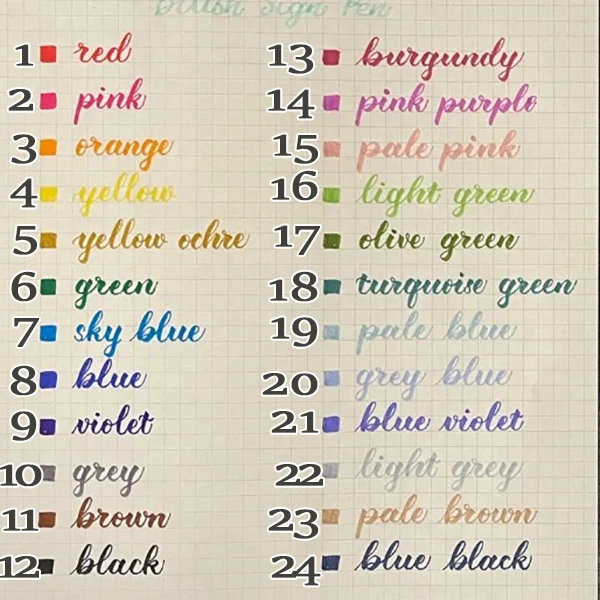 Brush Sign Pen
1 red
2 pink
3 orange
4 yellow
5 yellow ochre
6 green
7 sky blue
8 blue
9 violet
10 grey
11 brown
12 black
13 burgundy
14 pink purple
15 pale pink
16 light green
17 olive green
18 turquoise green
19 pale blue
20 grey blue
21 blue violet
22 light grey
23 pale brown
24 blue black